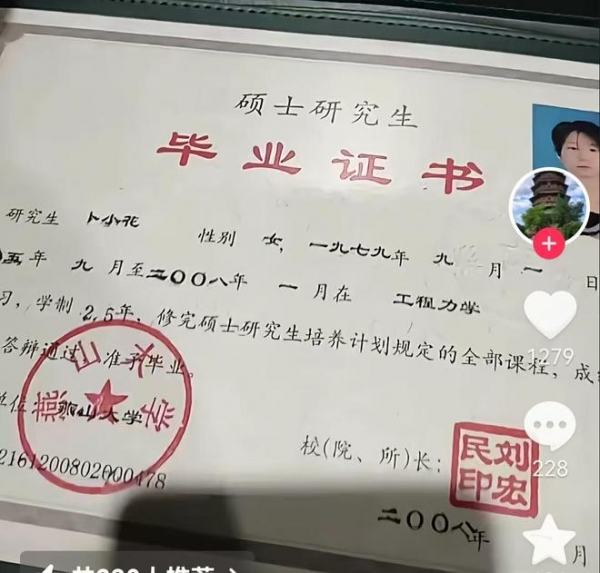 硕士研究生
毕业证书
研究生 卜小花 性别 女,一九七九年 九 月 一 日
五年 九 月至二〇〇八年 一 月在 工程力学
习,学制 2.5年,修完硕士研究生培养计划规定的全部课程,成
答辩通过 准予毕业。
单位: 燕山大学
燕山大学
校(院、所)长:
刘宏民印
216120080200 0478
二〇〇八年 月
1279
228